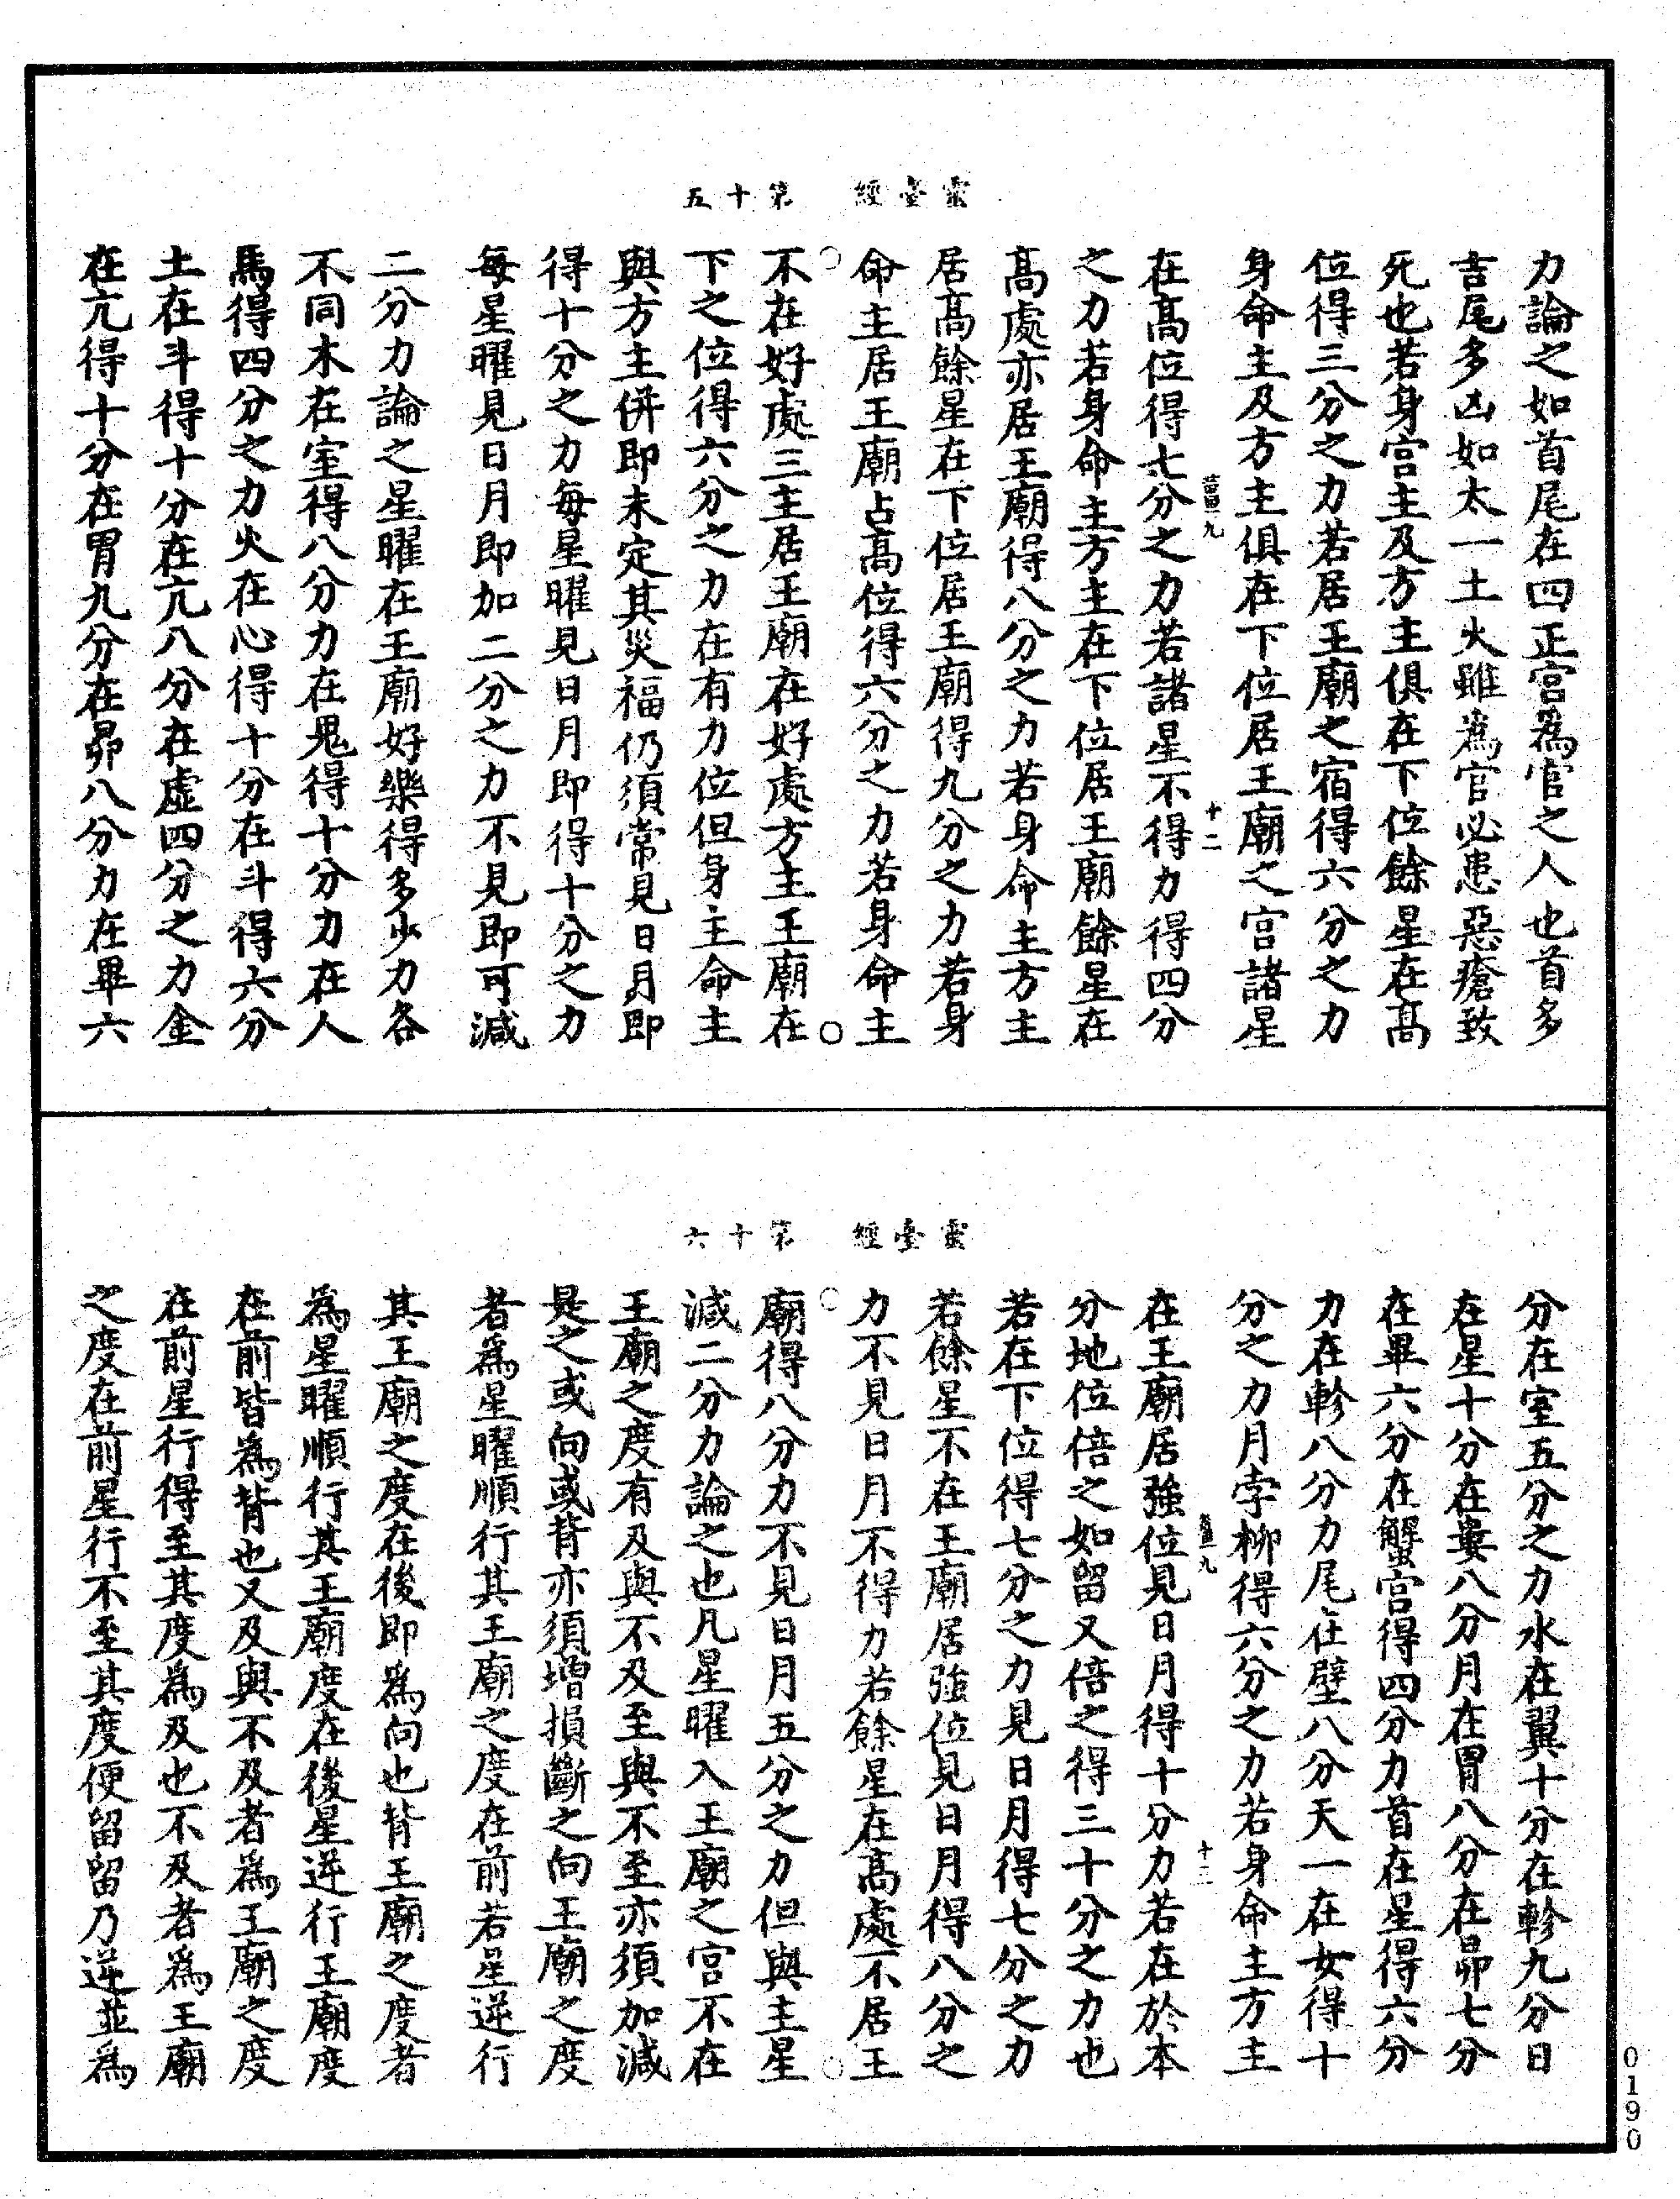 靈臺經　第十五
力論之如首尾在四正宮為官之人也首多
吉尾多凶如太一土火雖為官必患惡瘡致
死也若身宮主及方主俱在下位餘星在高
位得三分之力若居王廟之宿得六分之力
身命主及方主俱在下位居王廟之宮諸星
十二
在高位得七分之力若諸星不得力得四分
之力若身命主方主在下位居王廟餘星在
高處亦居王廟得八分之力若身命主方主
居高餘星在下位居王廟得九分之力若身
命主居王廟占高位得六分之力若身命主
不在好處三主居王廟在好處方主王廟在
下之位得六分之力在有力位但身主命主
與方主併即未定其災福仍須常見日月即
得十分之力每星曜見日月即得十分之力
每星曜見日月即加二分之力不見即可減
二分力論之星曜在王廟好樂得多少力各
不同木在室得八分力在鬼得十分力在人
馬得四分之力火在心得十分在斗得六分
土在斗得十分在亢八分在虛四分之力金
在亢得十分在胃九分在昴八分力在畢六
靈臺經　第十六
分在室五分之力水在翼十分在軫九分日
在星十分在婁八分月在胃八分在昴七分
在畢六分在蟹宮得四分力首在星得六分
力在軫八分力尾在壁八分天一在女得十
分之力月孛柳得六分之力若身命主方主
十三
在王廟居強位見日月得十分力若在於本
分地位倍之如留又倍之得三十分之力也
若在下位得七分之力見日月得七分之力
若餘星不在王廟居強位見日月得八分之
力不見日月不得力若餘星在高處不居王
廟得八分力不見日月五分之力但與主星
減二分力論之也凡星曜入王廟之宮不在
王廟之度有及與不及至與不至亦須加減
是之或向或背亦須增損斷之向王廟之度
者為星曜順行其王廟之度在前若星逆行
其王廟之度在後即為向也背王廟之度者
為星曜順行其王廟度在後星逆行王廟度
在前皆為背也又及與不及者為王廟之度
在前星行得至其度為及也不及者為王廟
之度在前星行不至其度便留留乃逆並為
0190